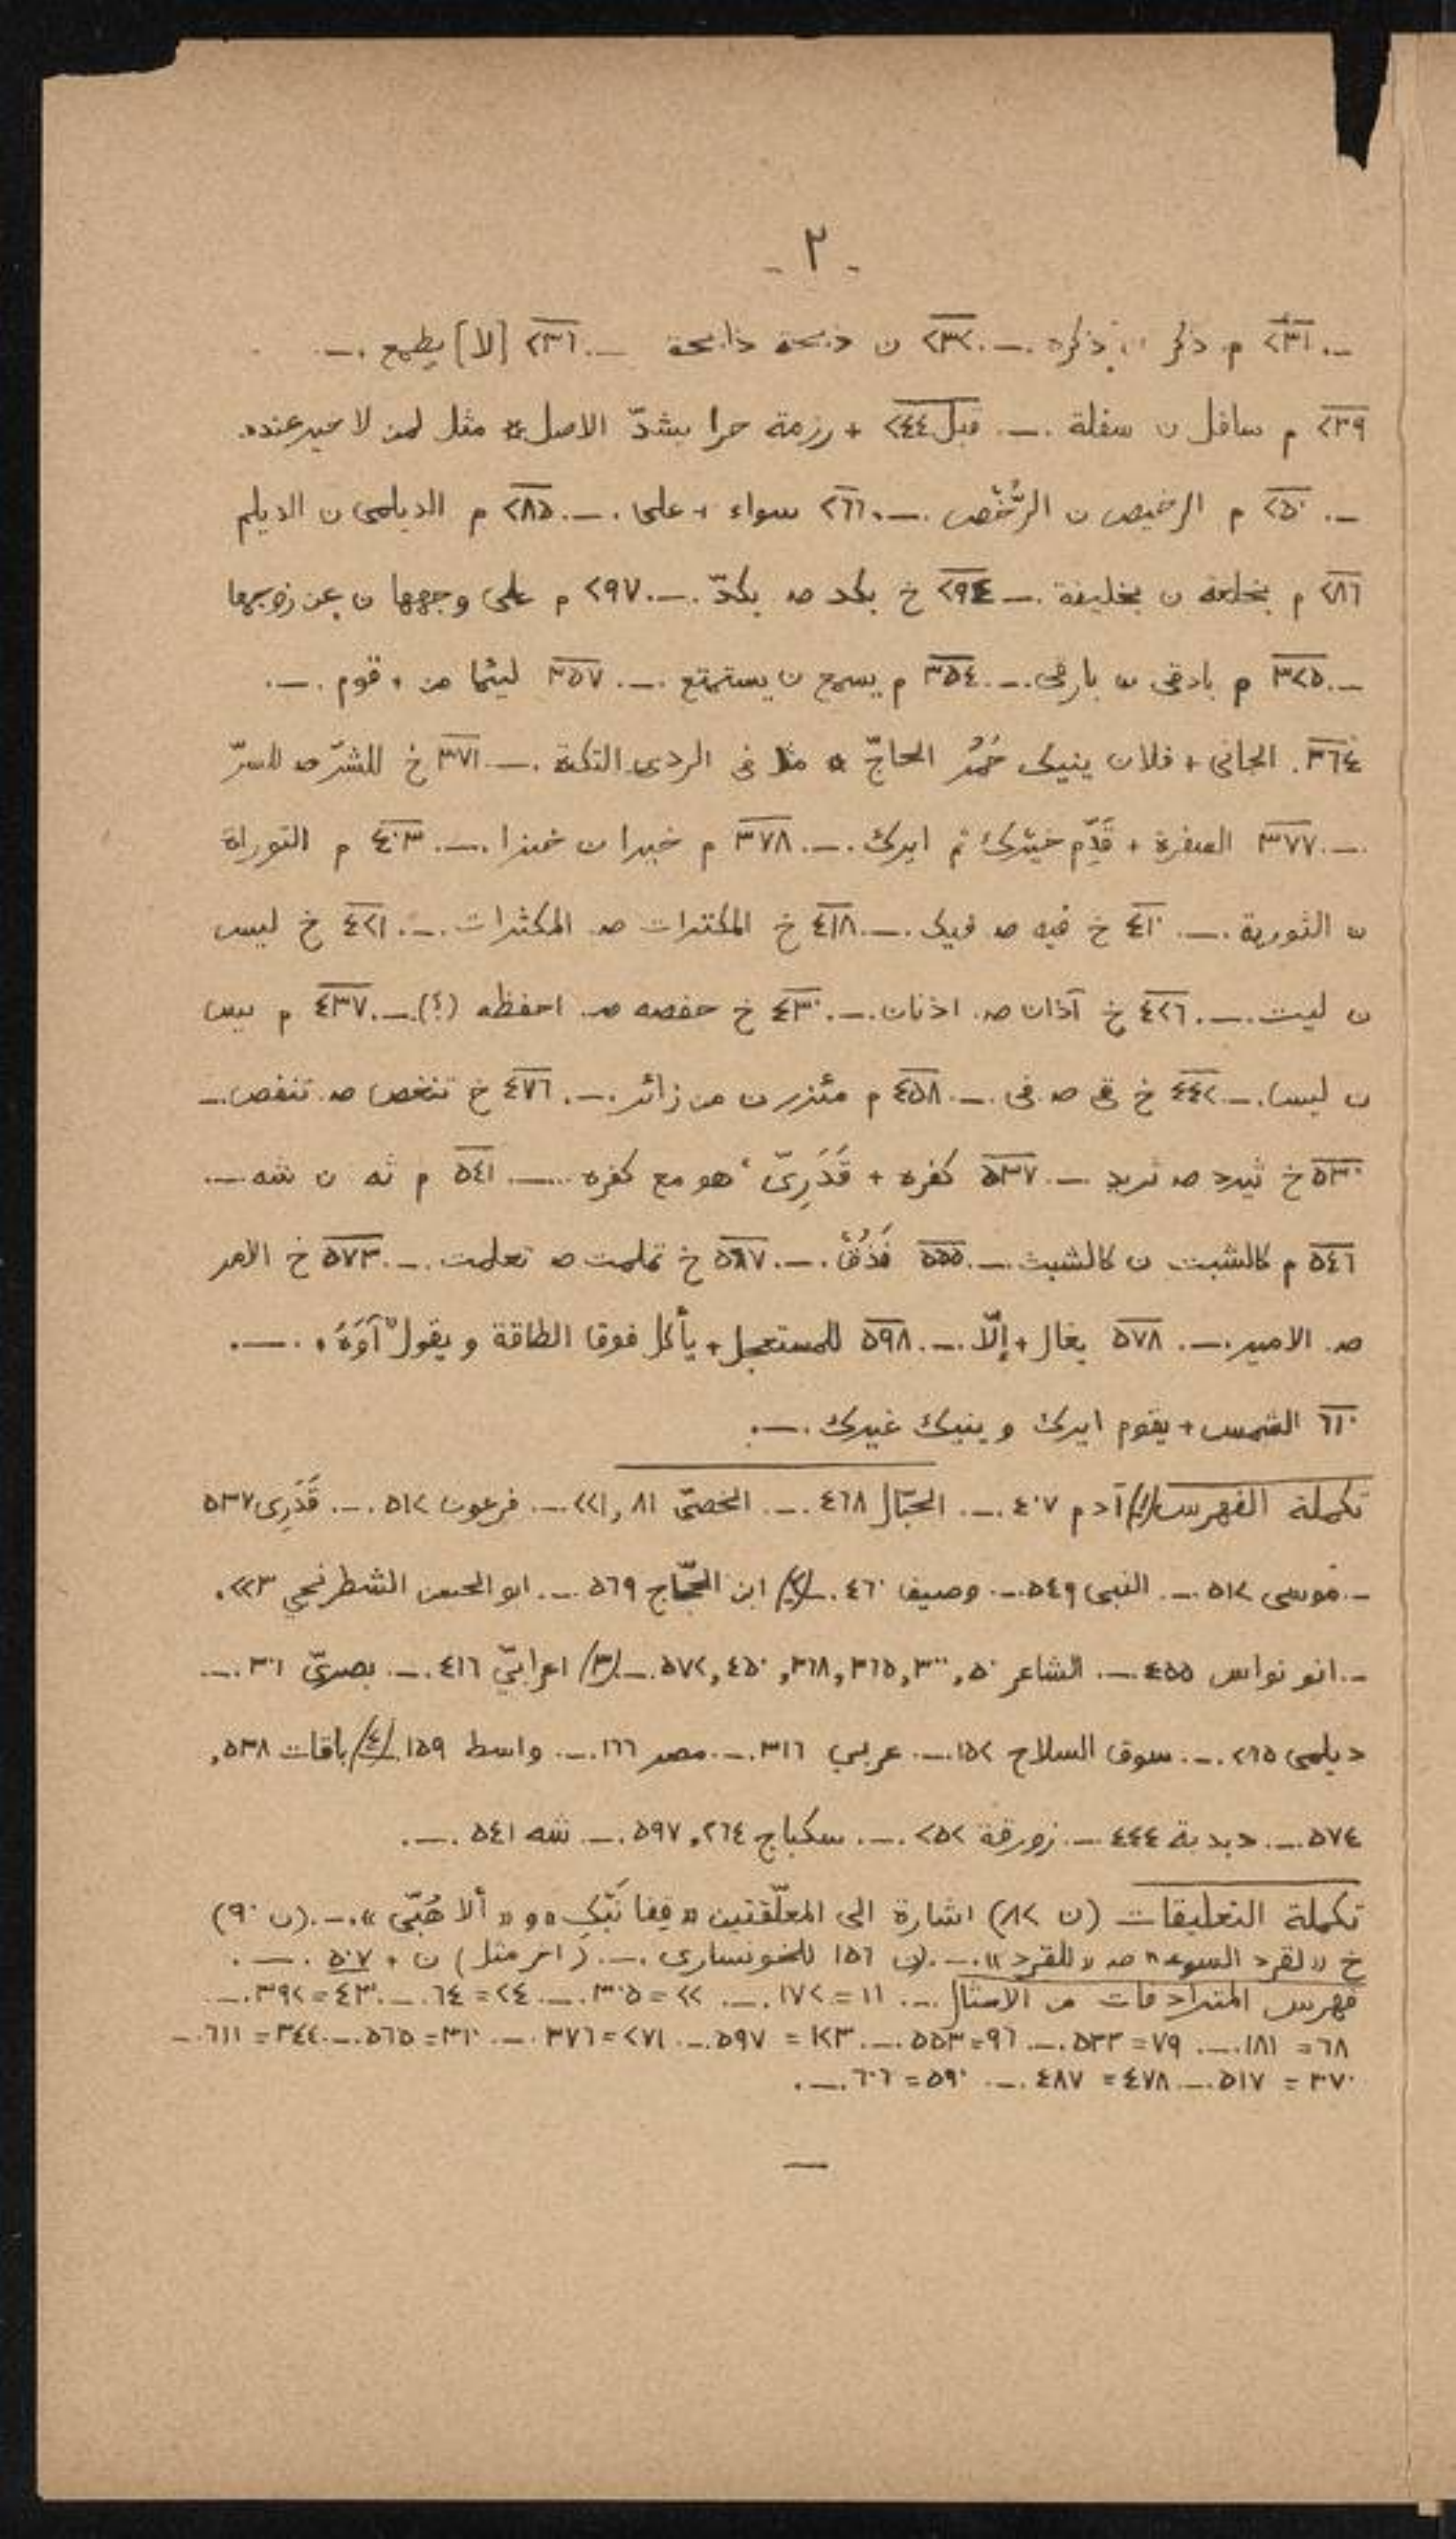 - ٢ -
ـ. ٢٣١ م ذكر ن ذكره .ـ. ٢٣٢ ن ذبحة ذابحة ـ. ٢٣٦ [لا] يطمع .ـ.
٢٣٩ م سافل ن سفلة .ـ. قبل ٢٤٤ + رزمة حرا يشدّ الاصل * مثل لمن لا خير عنده.
ـ. ٢٥٠ م الرخيص ن الرُّخْص .ـ. ٢٦٦ سواء + على .ـ. ٢٨٥ م الديلمى ن الديلم
٢٨٦ م بخلعه ن بخليفة .ـ ٢٩٤ خ بكد صہ بكدّ .ـ. ٢٩٧ م على وجهها ن عن زوجها
ـ. ٣٢٥ م بادقى ن بارقى .ـ. ٣٥٤ م يسمع ن يستمتع .ـ. ٣٥٧ ليثما من + قوم .ـ.
٣٦٤. الجانى + فلان ينيك حُمُر الحاجّ * مثل فى الردى التكة .ـ. ٣٧١ خ للشرّ صہ للسرّ
.ـ. ٣٧٧ الصفرة + قَدِّم خيرك ثم ايرك .ـ. ٣٧٨ م خبرا ن خبزا .ـ. ٤٠٣ م التوراة
ن الثورية .ـ. ٤١٠ خ فيه صہ فيك .ـ. ٤١٨ خ المكترات صہ المكثرات .ـ. ٤٢١ خ ليس
ن ليت .ـ. ٤٢٦ خ آذان صہ اذنان .ـ. ٤٣٠ خ حفصه صہ احفظه (؟) .ـ. ٤٣٧ م بيس
ن ليس .ـ. ٤٤٢ خ قى صہ فى .ـ. ٤٥٨ م مئزر ن من زائر .ـ. ٤٧٦ خ تنغص صہ تنفص .ـ
٥٣٠ خ ثيرد صہ تريد ـ. ٥٣٧ كفره + قَدَرِىّ، هو مع كفره .ـ. ٥٤١ م ثه ن شه .ـ.
٥٤٦ م كالشبت ن كالشبث .ـ. ٥٥٥ فَذُقْ .ـ. ٥٦٧ خ تملمت صہ تعلمت .ـ. ٥٧٣ خ الامر
صہ الامير .ـ. ٥٧٨ يغال + إلّا .ـ. ٥٩٨ للمستعجل + يأكل فوق الطاقة ويقول آوَه .ـ.
٦١٠ الشمس + يقوم ايرك وينيك غيرك .ـ.
تكملة الفهرس /١/ آدم ٤٠٧ .ـ. الحبّال ٤٦٨ .ـ. الخصىّ ٨١, ٢٢١ .ـ. فرعون ٥١٢ .ـ. قَدَرِى ٥٣٧
.ـ. موسى ٥١٢ .ـ. النبى ٥٤٩ .ـ. وصيف ٤٦٠ .ـ /٢/ ابن الحجّاج ٥٦٩ .ـ. ابو الحسن الشطرنجي ٢٢٣.
ـ. ابو نواس ٤٥٥ .ـ. الشاعر ٥٠, ٣٠٠, ٣٦٥, ٣٦٨, ٤٥٠, ٥٧٢ .ـ /٣/ اعرابىّ ٤١٦ .ـ. بصرىّ ٣٠١ .ـ.
ديلمى ٢٦٥ .ـ. سوق السلاح ١٥٢ .ـ. عربي ٣١٦ .ـ. مصر ١٦٦ .ـ. واسط ١٥٩ /٤/ باقات ٥٣٨,
٥٧٤ .ـ. دبدبة ٤٤٤ .ـ. زورقة ٢٥٢ .ـ. سكباج ٢٦٤, ٥٩٧ .ـ. شه ٥٤١ .ـ.
تكملة التعليقات (ن ٨٢) اشارة الى المعلّقتين «قفا نَبْكِ» و «ألا هُبّى» .ـ. (ن ٩٠)
خ «لقرد السوء» صہ «للقرد» .ـ. (ن ١٥٦ للخونسارى .ـ. (آخر مثل) ن + ٥٠٧ .ـ.
فهرس المترادفات من الامثال .ـ. ١١ = ١٧٢ .ـ. ٢٢ = ٣٠٥ .ـ. ٢٤ = ٦٤ .ـ. ٤٣ = ٣٩٢ .ـ.
٦٨ = ١٨١ .ـ. ٧٩ = ٥٣٣ .ـ. ٩٦ = ٥٥٣ .ـ. ١٢٣ = ٥٩٧ .ـ. ٢٧١ = ٣٧٦ .ـ. ٣١٠ = ٥٦٥ .ـ. ٣٤٤ = ٦١١ .ـ
٣٧٠ = ٥١٧ .ـ. ٤٧٨ = ٤٨٧ .ـ. ٥٩٠ = ٦٠٦ .ـ.